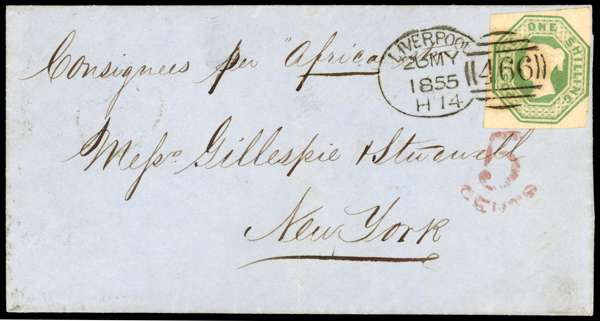 Consignees per "Africa"
LIVERPOOL
26 MY
1855
H 14
466
ONE SHILLING
Messrs. Gillespie &
New York
5
CENTS